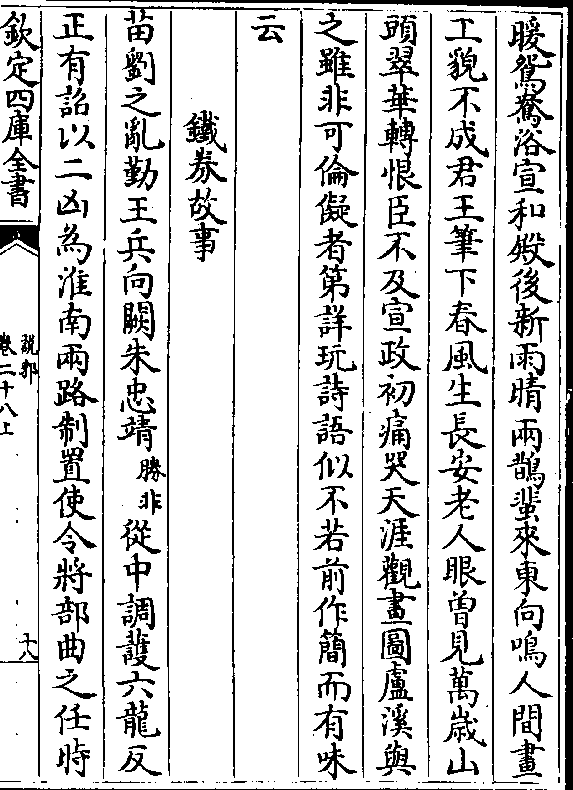 暖鴛鴦浴宣和殿後新雨晴兩鵲蜚來東向鳴人間畫
工貌不成君王筆下春風生長安老人眼曾見萬歳山
頭翠華轉恨臣不及宣政初痛哭天涯觀畫圖盧溪與
之雖非可倫儗者第詳玩詩語似不若前作簡而有味
云
鐵券故事
苗劉之亂勤王兵向闕朱忠靖勝非從中調護六龍反
正有詔以二凶為淮南兩路制置使令將部曲之任時
欽定四庫全書
說郛
卷二十八上
十八